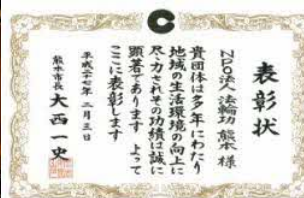 表彰状
NPO法人 法輪功 熊本 様
貴団体は多年にわたり
地域の生活環境の向上に
尽力されその功績は誠に
顕著であります よって
ここに表彰します
平成二十七年 二月三日
熊本市長 大西一史